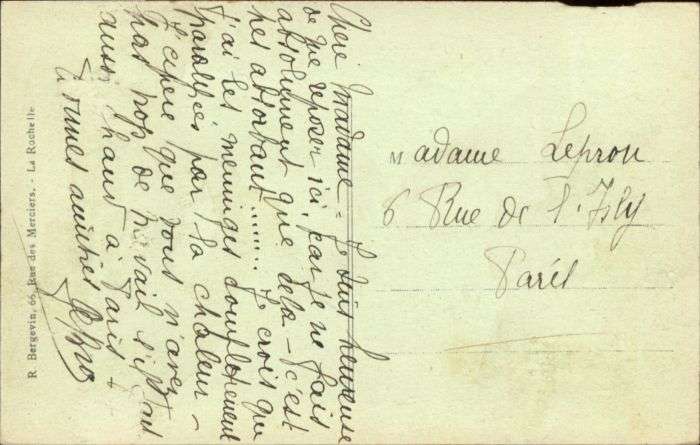 Chère Madame - Je suis heureuse
de me reposer ici, car je ne fais
absolument que cela - c'est
très absorbant ....... Je crois que
j'ai les méninges complètement
paralysées par la chaleur -
J'espère que vous n'avez
pas trop de travail s'il fait
aussi chaud à Paris +
Bonnes amitiés
R. Bergevin, 66, Rue des Merciers. - La Rochelle
Madame Lepron
6 Rue de l'Isly
Paris